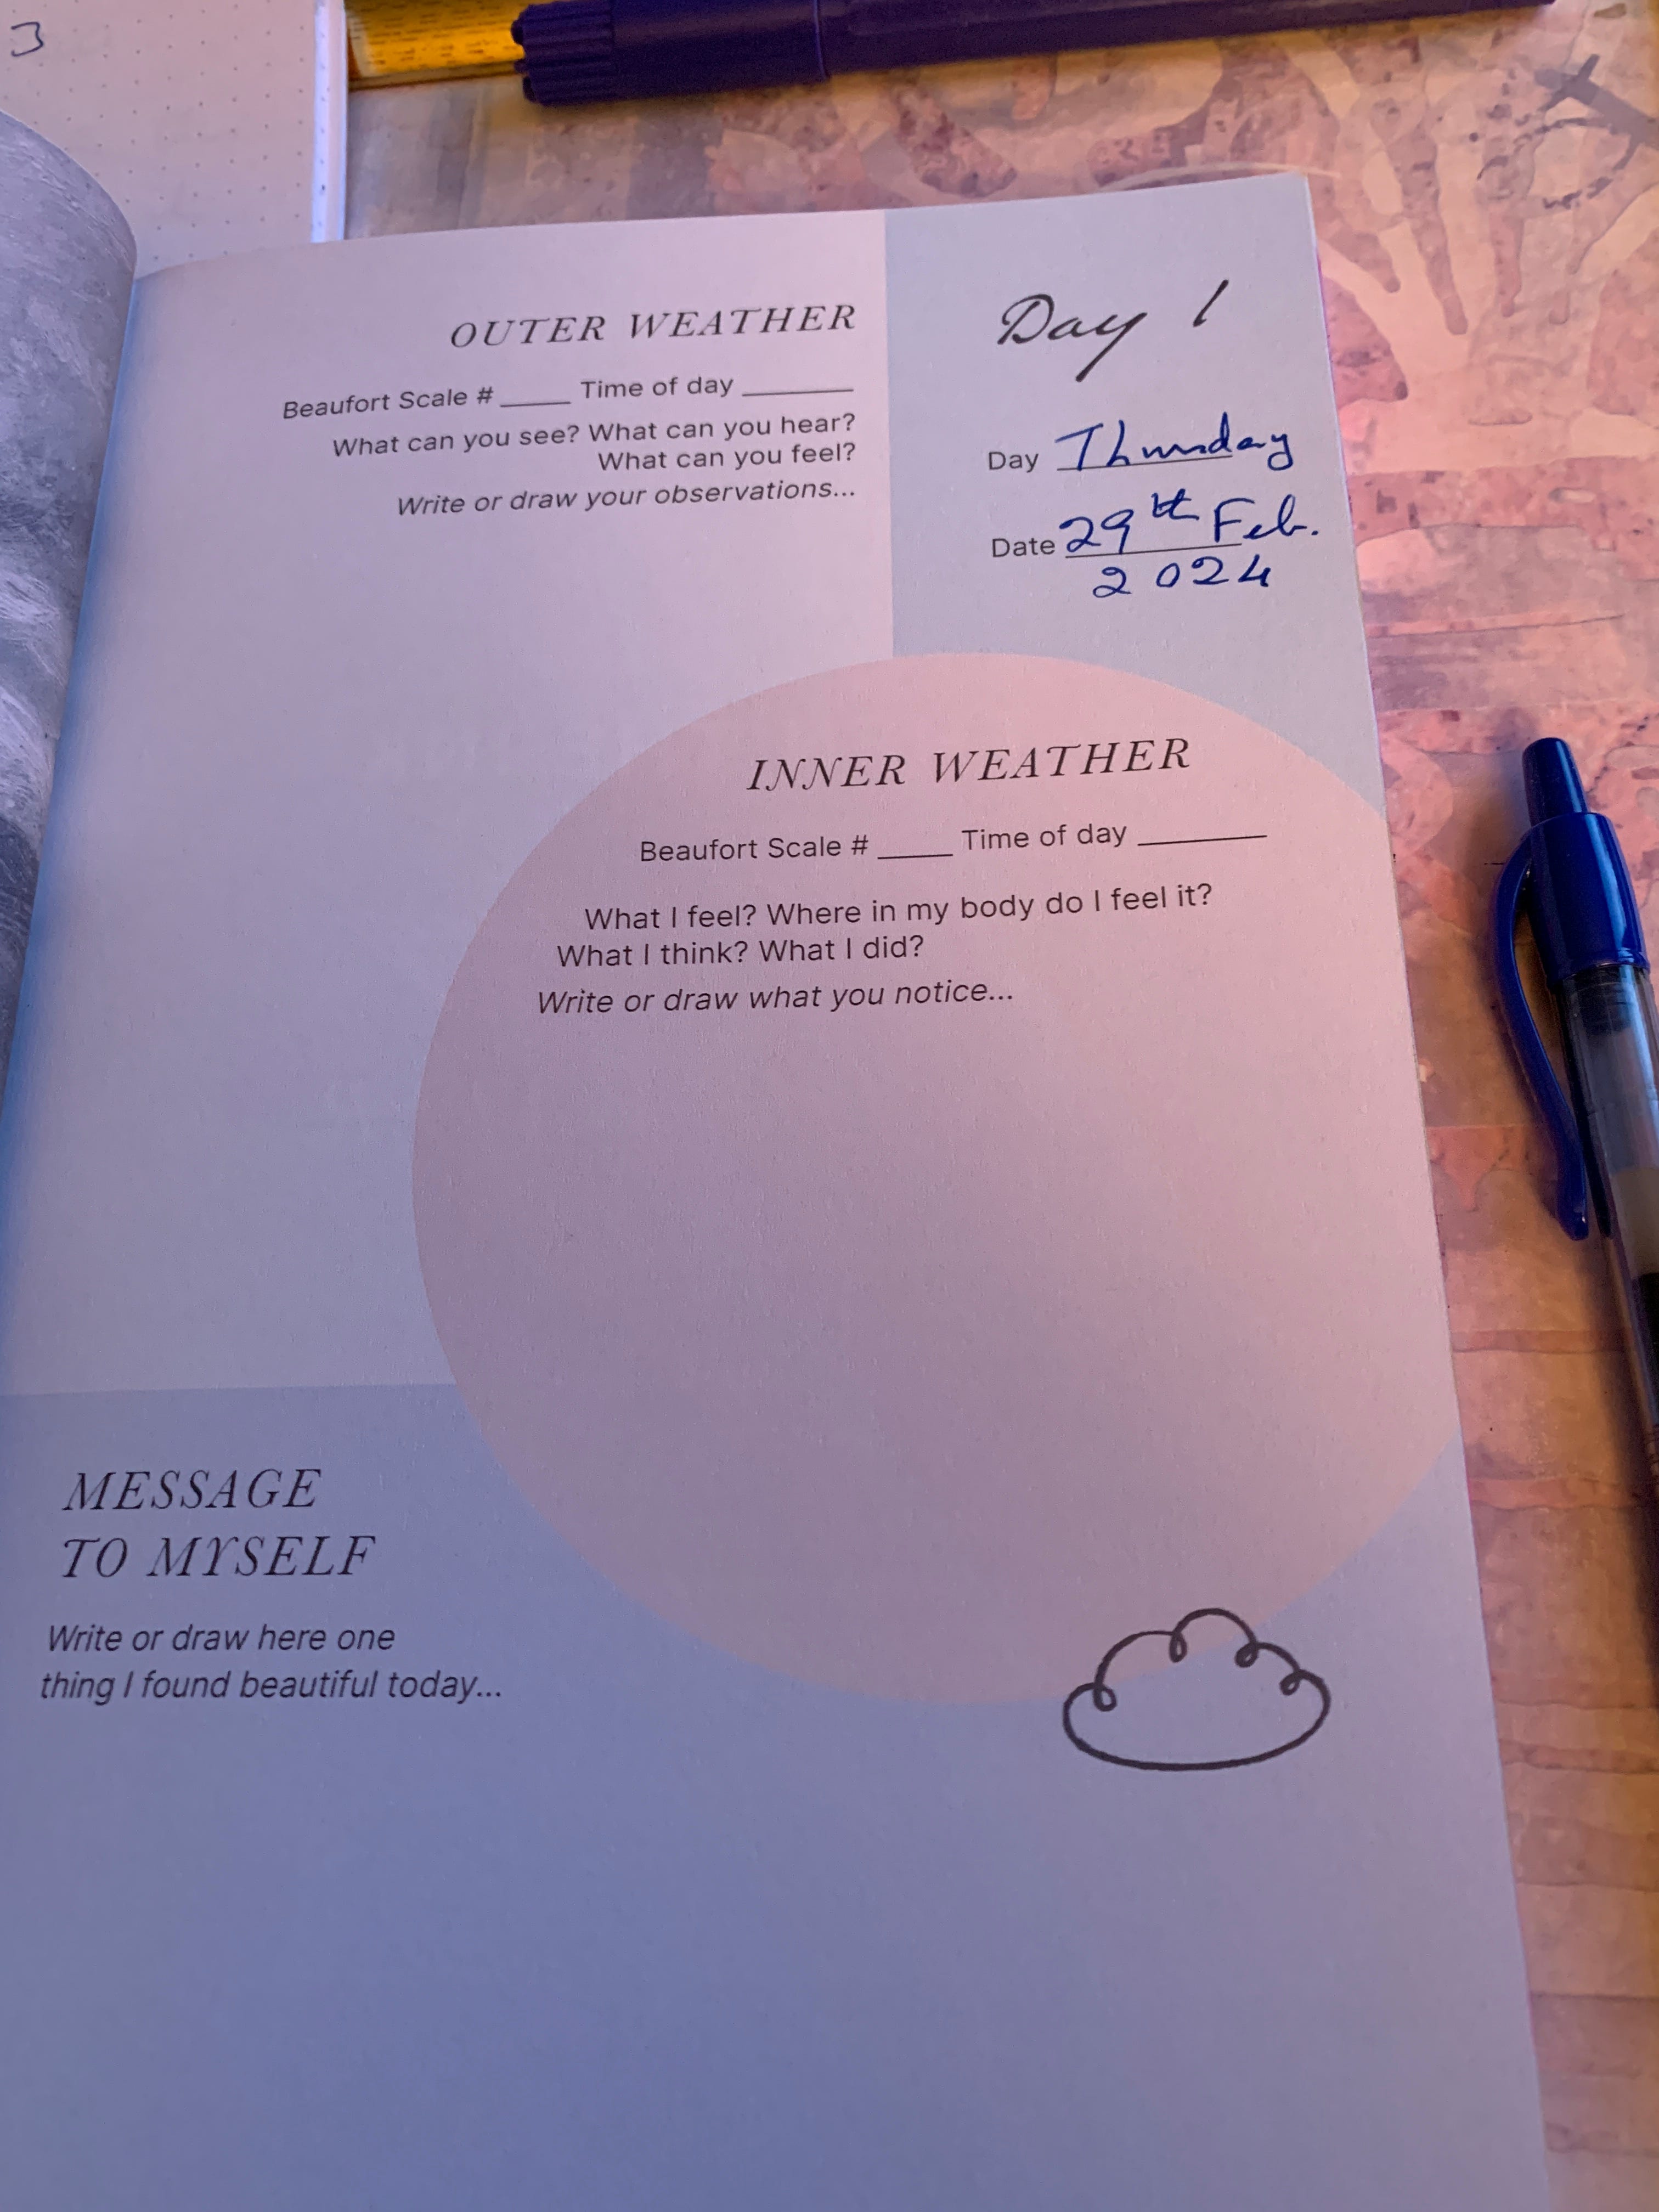 3
OUTER WEATHER
Beaufort Scale # _____ Time of day ________
What can you see? What can you hear?
What can you feel?
Write or draw your observations...
Day 1
Day Thursday
Date 29th Feb.
2024
INNER WEATHER
Beaufort Scale # _____ Time of day ________
What I feel? Where in my body do I feel it?
What I think? What I did?
Write or draw what you notice...
MESSAGE
TO MYSELF
Write or draw here one
thing I found beautiful today...